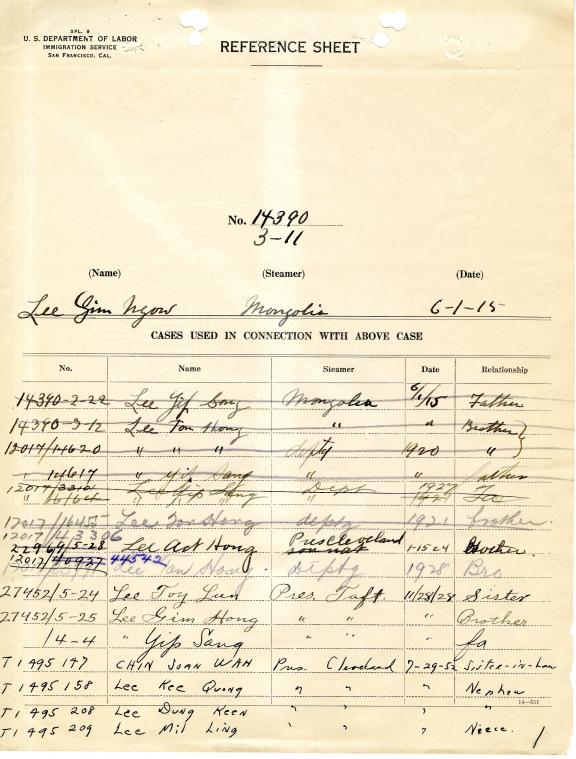 SPL. 9
U. S. DEPARTMENT OF LABOR
IMMIGRATION SERVICE
SAN FRANCISCO, CAL.
REFERENCE SHEET
No. 14390
3-11
(Name) (Steamer) (Date)
Lee Gim Ngow Mongolia 6-1-15
CASES USED IN CONNECTION WITH ABOVE CASE
No. Name Steamer Date Relationship
14390-2-22 Lee Yip Mongolia 6/1/15 Father
14390-3-12 Lee Fon Hong " " Brother
12017/14620 " " " depty 1920 "
14617 " Yip Sang " " father
Lee Yip Dept 1927
12017/ Lee Fon Hong depty 1921 brother.
12017/43306
5-28 Lee Hong Pres Cleveland 1-15-24
12017/40927 44542 Lee Hong Depty 1928 Bro
27452/5-24 Lee Toy Lun Pres. Taft. 11/28/28 Sister
27452/5-25 Lee Gim Hong " " " Brother
/4-4 " Yip Sang " " " fa
T1495 147 CHIN JOAN WAH Pres Cleveland 7-29-52 Sister-in-Law
T1495 158 Lee Kee Quong " " " Nephew
14-531
T1495 208 Lee Dung Keen " " " "
T1495 209 Lee Mil Ling " " " Niece.
1